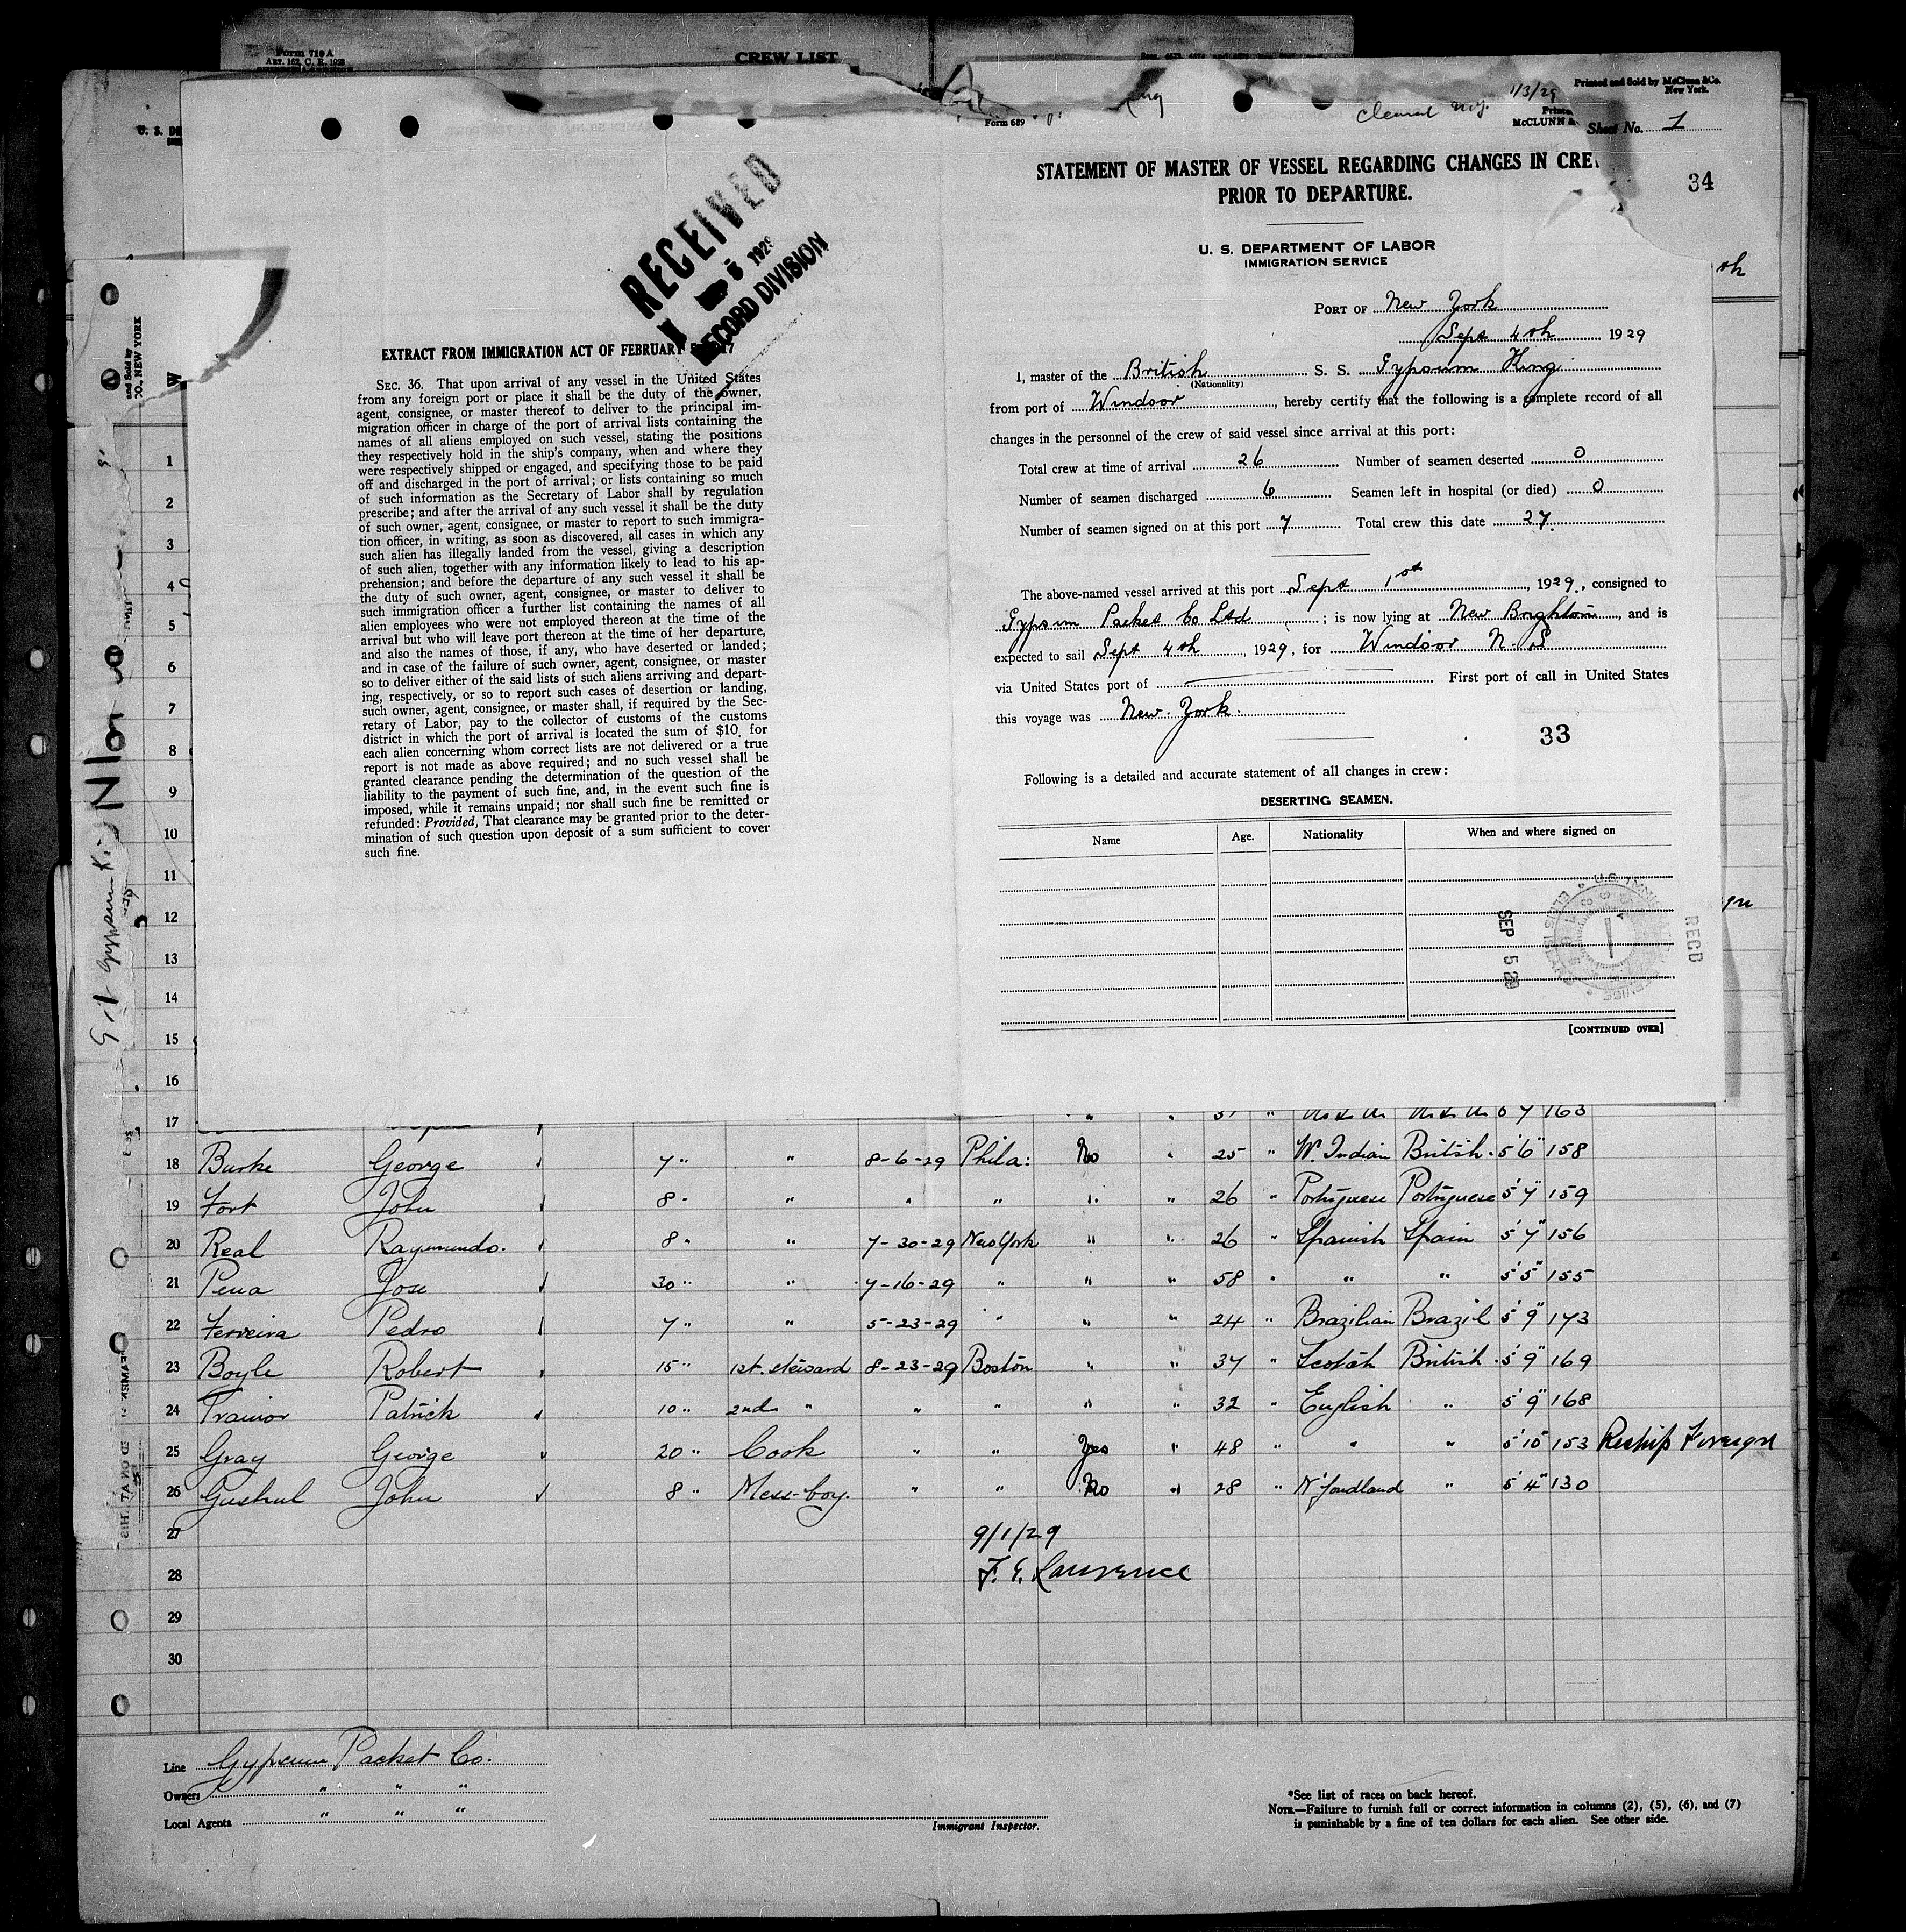 Form 710 A
ART. 162, C. R. 1923
CREW LIST
Printed and Sold by McClunn & Co.
New York.
Form 689
1/3/29
McCLUNN &
Sheet No. 1
34
U. S. DE
STATEMENT OF MASTER OF VESSEL REGARDING CHANGES IN CRE
PRIOR TO DEPARTURE.
U. S. DEPARTMENT OF LABOR
IMMIGRATION SERVICE
PORT OF New York
Sept 4th 1929
I, master of the British S. S. Gypsum King
(Nationality)
from port of Windsor, hereby certify that the following is a complete record of all
changes in the personnel of the crew of said vessel since arrival at this port:
Total crew at time of arrival 26 Number of seamen deserted 0
Number of seamen discharged 6 Seamen left in hospital (or died) 0
Number of seamen signed on at this port 7 Total crew this date 27
The above-named vessel arrived at this port Sept 1st, 1929, consigned to
Gypsum Packet Co Ltd; is now lying at New Brighton, and is
expected to sail Sept 4th, 1929, for Windsor N. S
via United States port of First port of call in United States
this voyage was New York.
33
Following is a detailed and accurate statement of all changes in crew:
DESERTING SEAMEN.
Name Age. Nationality When and where signed on
SEP 5 29
RECD
[CONTINUED OVER]
RECEIVED
5 1929
RECORD DIVISION
EXTRACT FROM IMMIGRATION ACT OF FEBRUARY 5, 1917
SEC. 36. That upon arrival of any vessel in the United States
from any foreign port or place it shall be the duty of the owner,
agent, consignee, or master thereof to deliver to the principal im-
migration officer in charge of the port of arrival lists containing the
names of all aliens employed on such vessel, stating the positions
they respectively hold in the ship's company, when and where they
were respectively shipped or engaged, and specifying those to be paid
off and discharged in the port of arrival; or lists containing so much
of such information as the Secretary of Labor shall by regulation
prescribe; and after the arrival of any such vessel it shall be the duty
of such owner, agent, consignee, or master to report to such immigra-
tion officer, in writing, as soon as discovered, all cases in which any
such alien has illegally landed from the vessel, giving a description
of such alien, together with any information likely to lead to his ap-
prehension; and before the departure of any such vessel it shall be
the duty of such owner, agent, consignee, or master to deliver to
such immigration officer a further list containing the names of all
alien employees who were not employed thereon at the time of the
arrival but who will leave port thereon at the time of her departure,
and also the names of those, if any, who have deserted or landed;
and in case of the failure of such owner, agent, consignee, or master
so to deliver either of the said lists of such aliens arriving and depart-
ing, respectively, or so to report such cases of desertion or landing,
such owner, agent, consignee, or master shall, if required by the Sec-
retary of Labor, pay to the collector of customs of the customs
district in which the port of arrival is located the sum of $10 for
each alien concerning whom correct lists are not delivered or a true
report is not made as above required; and no such vessel shall be
granted clearance pending the determination of the question of the
liability to the payment of such fine, and, in the event such fine is
imposed, while it remains unpaid; nor shall such fine be remitted or
refunded: Provided, That clearance may be granted prior to the deter-
mination of such question upon deposit of a sum sufficient to cover
such fine.
and Sold by
CO., NEW YORK
1
2
3
4
5
6
7
8
9
10
11
12
13
14
15
16
17
18 Burke George 7 " " 8-6-29 Phila: No " 25 " W. Indian British. 5'6" 158
19 Fort John 8 " " " " " " 26 " Portuguese Portuguese 5'7" 159
20 Real Raymundo. 8 " " 7-30-29 New York " " 26 " Spanish Spain 5'7" 156
21 Pena Jose 30 " " 7-16-29 " " " 58 " " " 5'5" 155
22 Ferreira Pedro 7 " " 5-23-29 " " " 24 " Brazilian Brazil 5'9" 173
23 Boyle Robert 15 " 1st. steward 8-23-29 Boston " " 37 " Scotch British. 5'9" 169
24 Trainor Patrick 10 " 2nd " " " " " 32 " English " 5'9" 168
25 Gray George 20 " Cook " " Yes " 48 " " " 5'10" 153 Reship Foreign
26 Gushul John 8 " Mess-boy. " " No " 28 " N'foundland " 5'4" 130
27 9/1/29
28 F. E. Lawrence
29
30
Line Gypsum Packet Co.
Owners " " "
Local Agents " " "
Immigrant Inspector.
*See list of races on back hereof.
NOTE.—Failure to furnish full or correct information in columns (2), (5), (6), and (7)
is punishable by a fine of ten dollars for each alien. See other side.